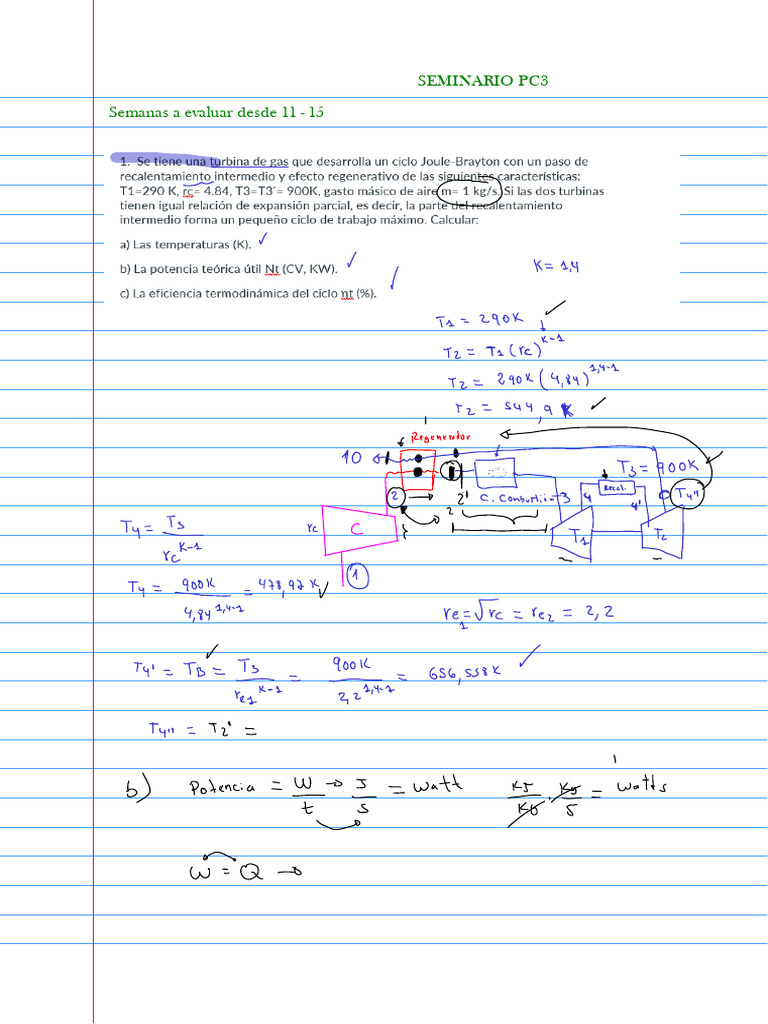 SEMINARIO PC3
Semanas a evaluar desde 11 - 15
1. Se tiene una turbina de gas que desarrolla un ciclo Joule-Brayton con un paso de
recalentamiento intermedio y efecto regenerativo de las siguientes características:
T1=290 K, rc= 4.84, T3=T3´= 900K, gasto másico de aire m= 1 kg/s. Si las dos turbinas
tienen igual relación de expansión parcial, es decir, la parte del recalentamiento
intermedio forma un pequeño ciclo de trabajo máximo. Calcular:
a) Las temperaturas (K).
b) La potencia teórica útil Nt (CV, KW).
K = 1,4
c) La eficiencia termodinámica del ciclo nt (%).
T1 = 290K
T2 = T1 (rc)^K-1
T2 = 290K (4,84)^1,4-1
T2 = 544,9 K
Regenerador
10
T3 = 900K
Recal.
T4''
2
2'
C. Combustión
3
4
4'
2
T4 = T3 / rc^K-1
rc
C
T1
T2
1
T4 = 900K / 4,84^1,4-1 = 478,97 K
re1 = √rc = re2 = 2,2
T4' = TB = T3 / re1^K-1 = 900K / 2,2^1,4-1 = 656,558K
T4'' = T2' =
b) Potencia = W / t → J / s = Watt
= Watts
W = Q →